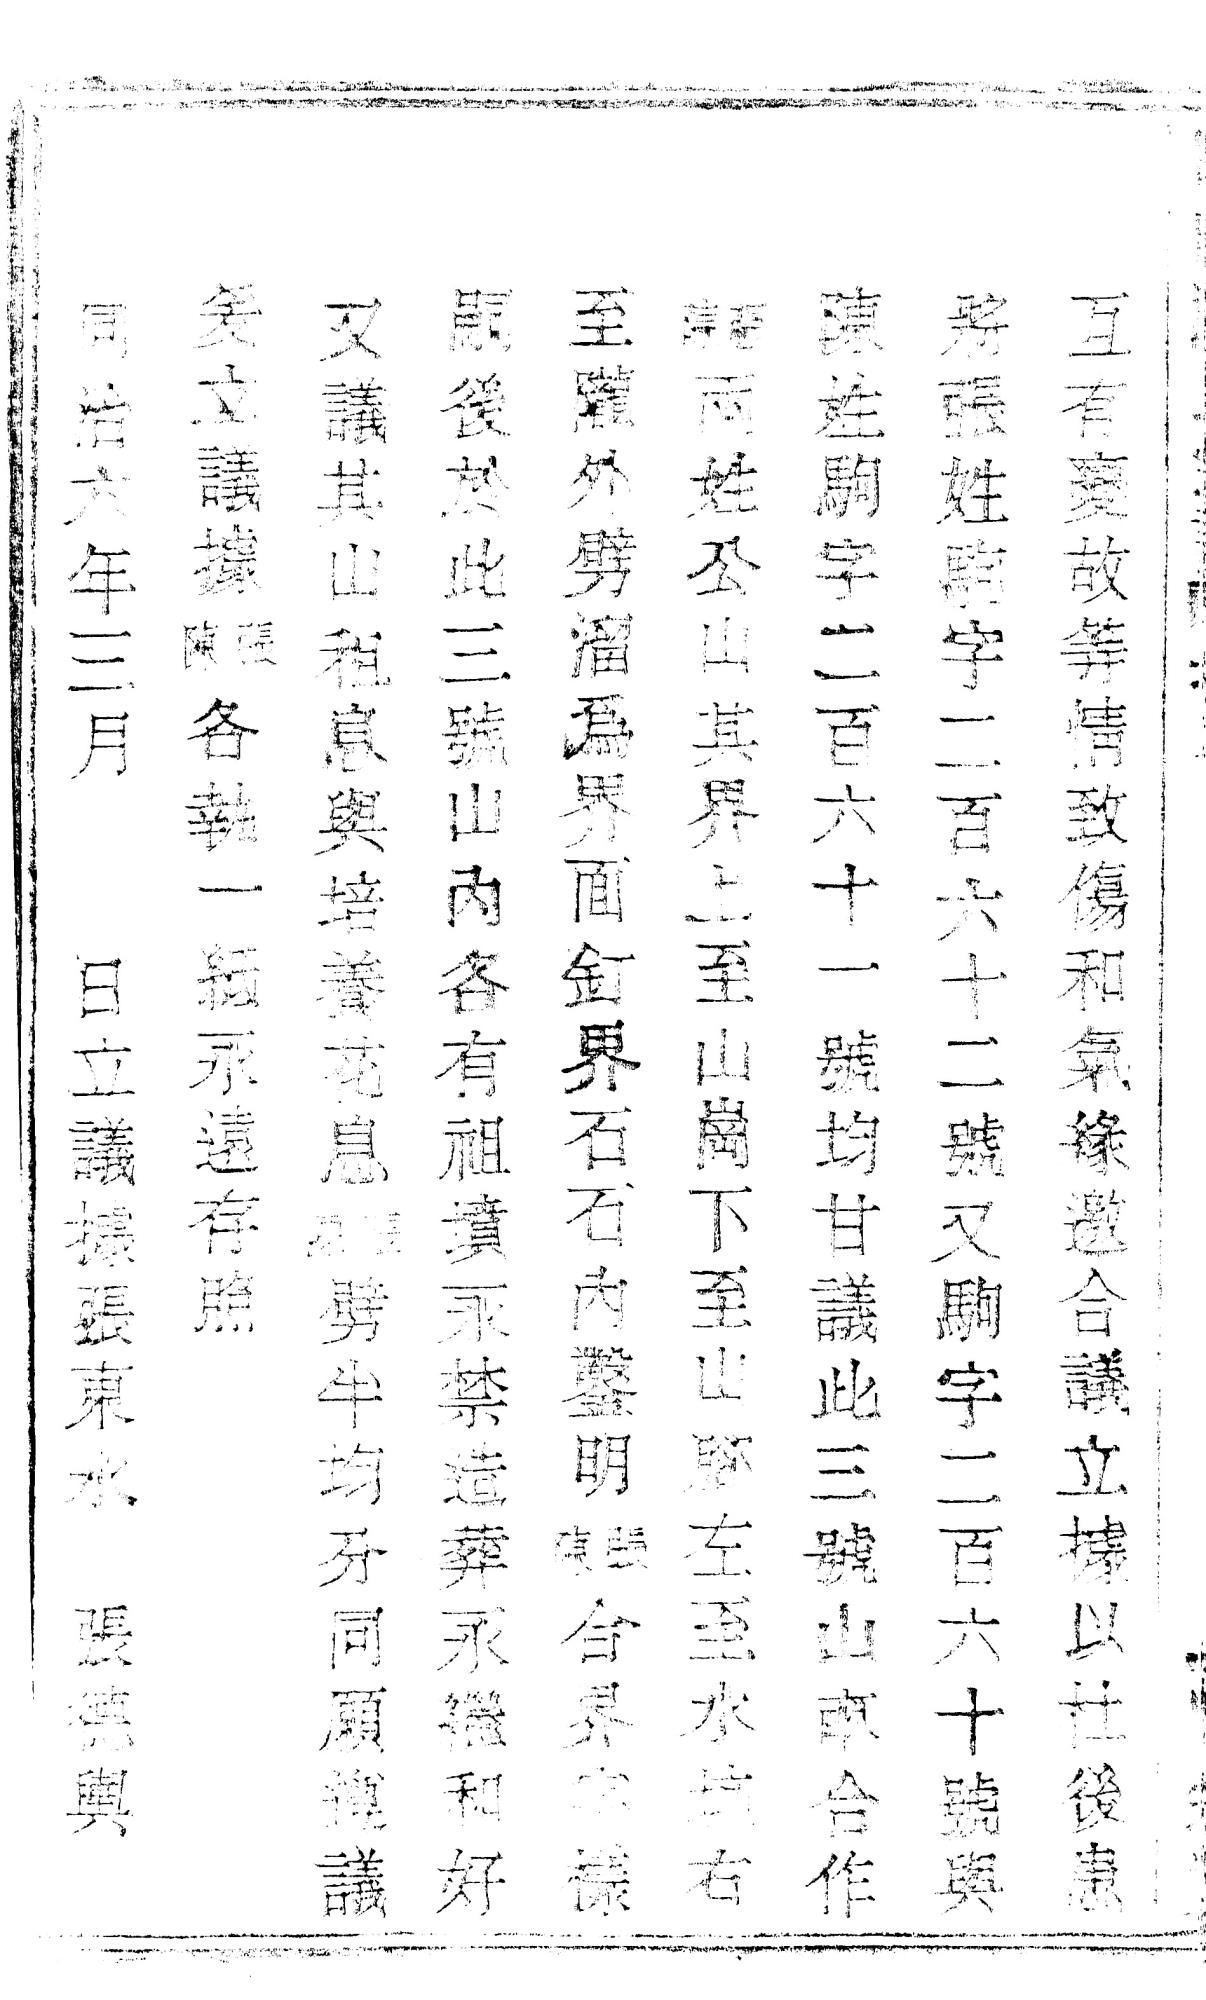 互有變故等情致傷和氣緣邀合議立據以杜後患
將張姓駒字二百六十二號又駒字二百六十號與
陳姓駒字二百六十一號均甘議此三號山卓合作
兩姓公山其界上至山崗下至山腳左至水坑右
至隴外劈溜爲界面釘界石石內鑿明張陳合界字樣
嗣後於此三號山內各有祖墳永禁造葬永繼和好
又議其山租息與培養花息張陳劈牛均分同願 議
爰立議據張陳各執一紙永遠存照
同治六年三月 日立議據張東水 張德輿